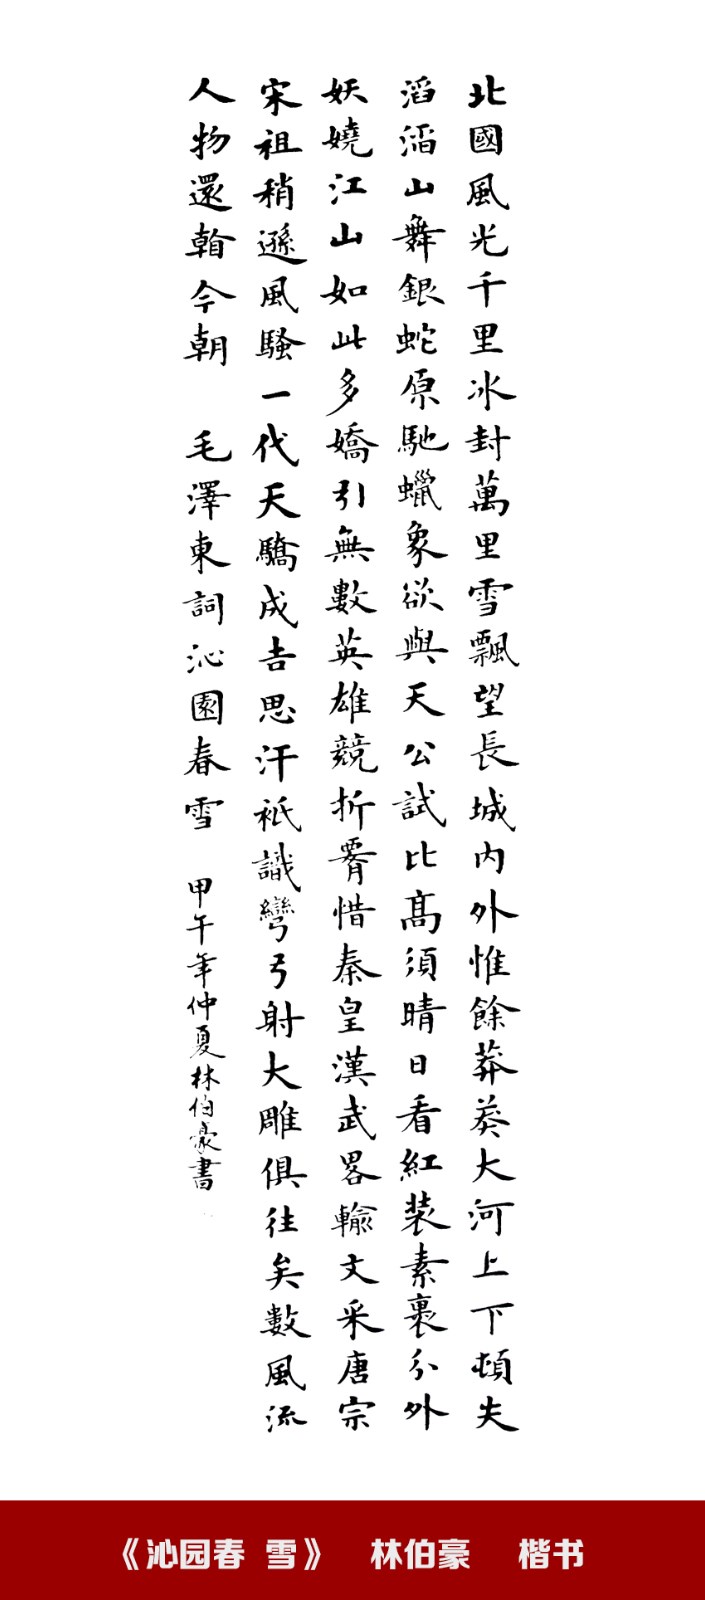 北國風光千里冰封萬里雪飄望長城內外惟餘莽莽大河上下頓失
滔滔山舞銀蛇原馳蠟象欲與天公試比高須晴日看紅装素裹分外
妖嬈江山如此多嬌引無數英雄競折腰惜秦皇漢武畧輸文采唐宗
宋祖稍遜風騷一代天驕成吉思汗衹識彎弓射大雕俱往矣數風流
人物還看今朝 毛澤東詞沁園春雪 甲午年仲夏林伯豪書
《沁园春 雪》 林伯豪 楷书